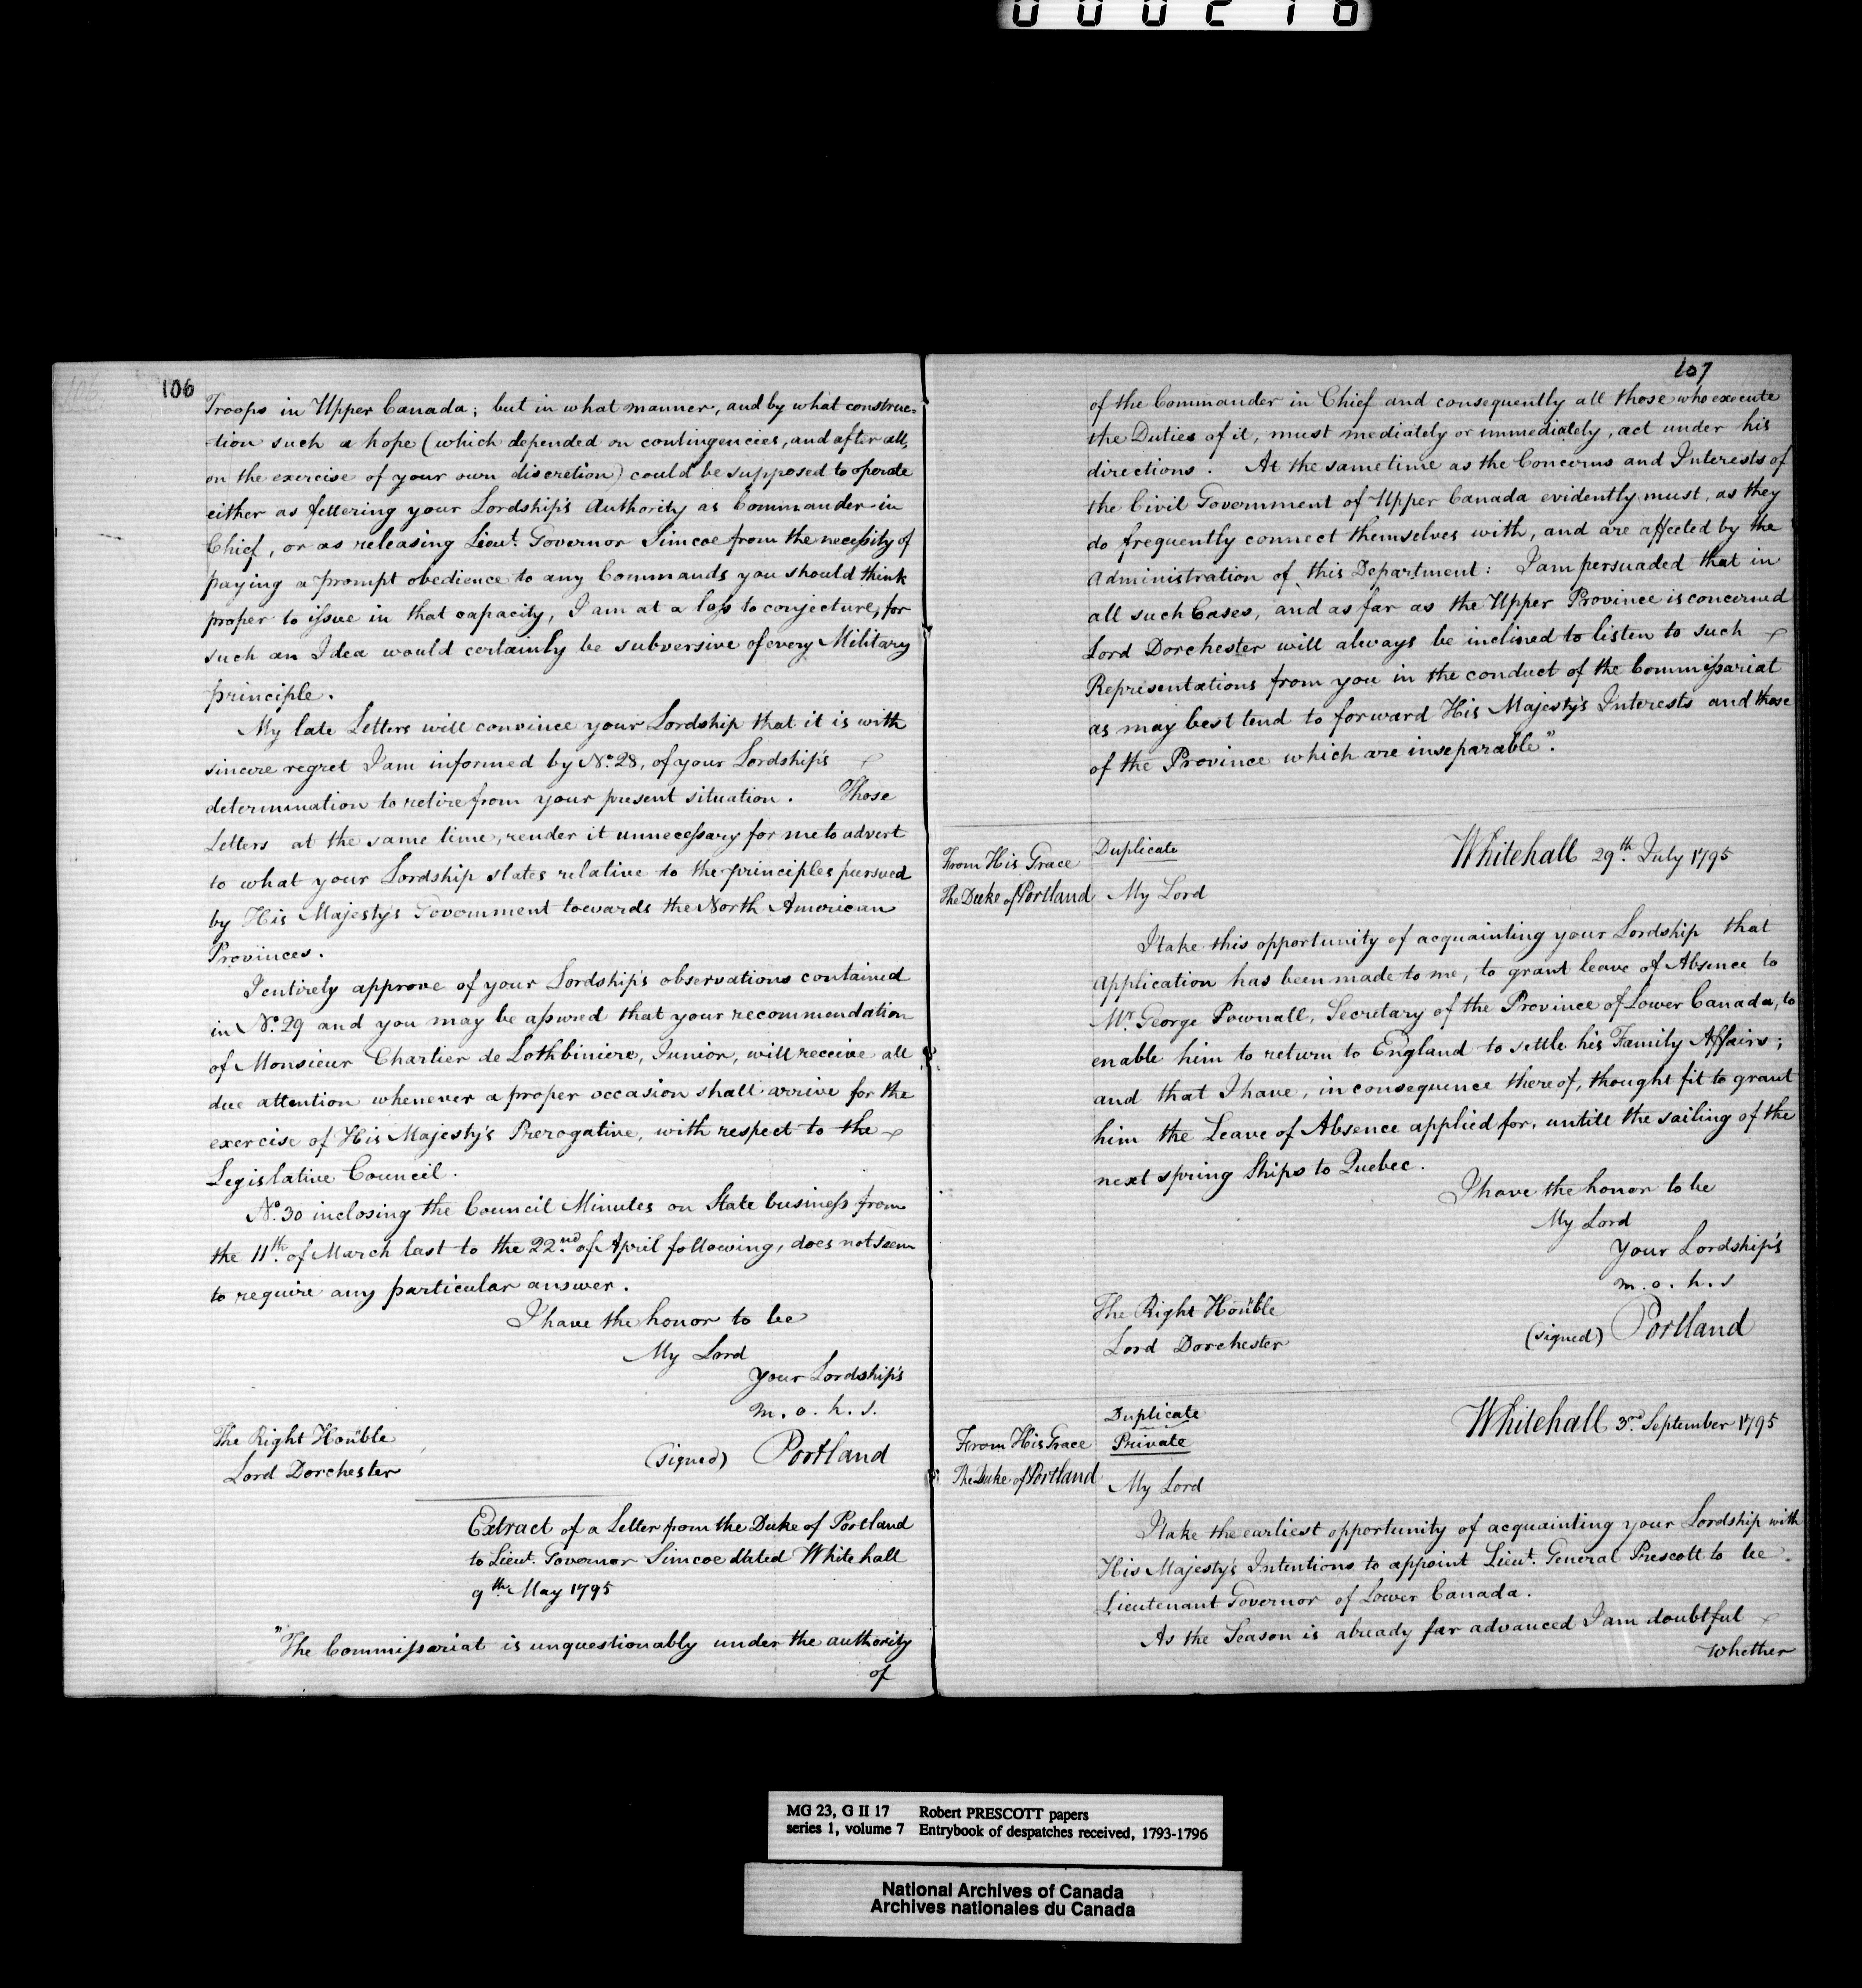 000216
106
106
Troops in Upper Canada; but in what manner, and by what construc-
-tion such a hope (which depended on contingencies, and after all,
on the exercise of your own discretion) could be supposed to operate
either as fettering your Lordship's Authority as Commander in
Chief, or as releasing Lieut. Governor Simcoe from the necessity of
paying a prompt obedience to any Commands you should think
proper to issue in that capacity, I am at a loss to conjecture, for
such an Idea would certainly be subversive of every Military
principle.
My late Letters will convince your Lordship that it is with
sincere regret I am informed by No. 28, of your Lordship's
determination to retire from your present situation. Those
Letters at the same time, render it unnecessary for me to advert
to what your Lordship states relative to the principles pursued
by His Majesty's Government towards the North American
Provinces.
I entirely approve of your Lordship's observations contained
in No. 29 and you may be assured that your recommendation
of Monsieur Chartier de Lothbiniere, Junior, will receive all
due attention whenever a proper occasion shall arrive for the
exercise of His Majesty's Prerogative, with respect to the
Legislative Council.
No. 30 inclosing the Council Minutes on State business from
the 11th. of March last to the 22nd. of April following, does not seem
to require any particular answer.
I have the honor to be
My Lord
Your Lordship's
m. o. h. s.
The Right Honble
Lord Dorchester
(signed) Portland
Extract of a Letter from the Duke of Portland
to Lieut. Governor Simcoe dated Whitehall
9th. May 1795
"The Commissariat is unquestionably under the authority
of
107
of the Commander in Chief and consequently all those who execute
the Duties of it, must mediately or immediately, act under his
directions. At the same time as the Concerns and Interests of
the Civil Government of Upper Canada evidently must, as they
do frequently connect themselves with, and are affected by the
Administration of this Department: I am persuaded that in
all such Cases, and as far as the Upper Province is concerned
Lord Dorchester will always be inclined to listen to such
Representations from you in the conduct of the Commissariat
as may best tend to forward His Majesty's Interests and those
of the Province which are inseparable".
From His Grace
The Duke of Portland
Duplicate
Whitehall 29th. July 1795
My Lord
I take this opportunity of acquainting your Lordship that
Application has been made to me, to grant leave of Absence to
Mr. George Pownall, Secretary of the Province of Lower Canada, to
enable him to return to England to settle his Family Affairs;
and that I have, in consequence thereof, thought fit to grant
him the Leave of Absence applied for, untill the sailing of the
next spring Ships to Quebec.
I have the honor to be
My Lord
Your Lordship's
m. o. h. s
The Right Honble
Lord Dorchester
(signed) Portland
From His Grace
The Duke of Portland
Duplicate
Private
Whitehall 3rd. September 1795
My Lord
I take the earliest opportunity of acquainting your Lordship with
His Majesty's Intentions to appoint Lieut. General Prescott to be
Lieutenant Governor of Lower Canada.
As the Season is already far advanced I am doubtful
Whether
MG 23, G II 17 Robert PRESCOTT papers
series 1, volume 7 Entrybook of despatches received, 1793-1796
National Archives of Canada
Archives nationales du Canada